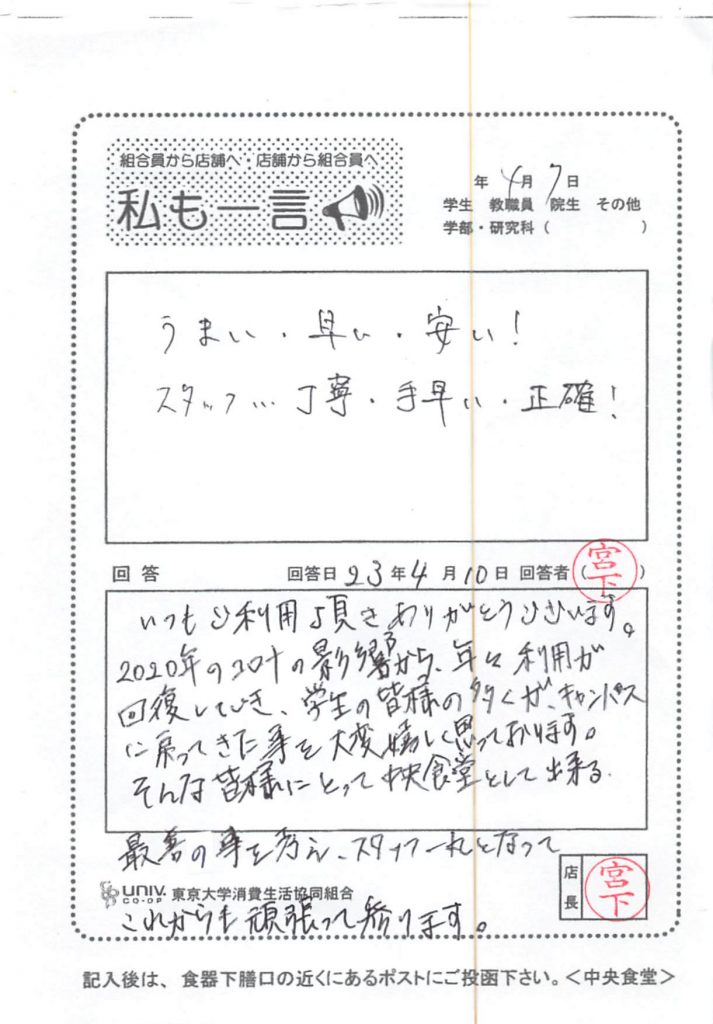 組合員から店舗へ・店舗から組合員へ
私も一言
年 4月 7日
学生 教職員 院生 その他
学部・研究科( )
うまい・早い・安い!
スタッフ…丁寧・手早い・正確!
回答 回答日 23年4月10日 回答者(宮下)
いつもご利用頂きありがとうございます。
2020年のコロナの影響から、年々利用が
回復していき、学生の皆様の多くが、キャンパス
に戻ってきた事を大変嬉しく思っております。
そんな皆様にとって中央食堂として出来る
最善の事を考え、スタッフ一丸となって
UNIV. CO-OP 東京大学消費生活協同組合
店長 宮下
これからも頑張って参ります。
記入後は、食器下膳口の近くにあるポストにご投函下さい。<中央食堂>